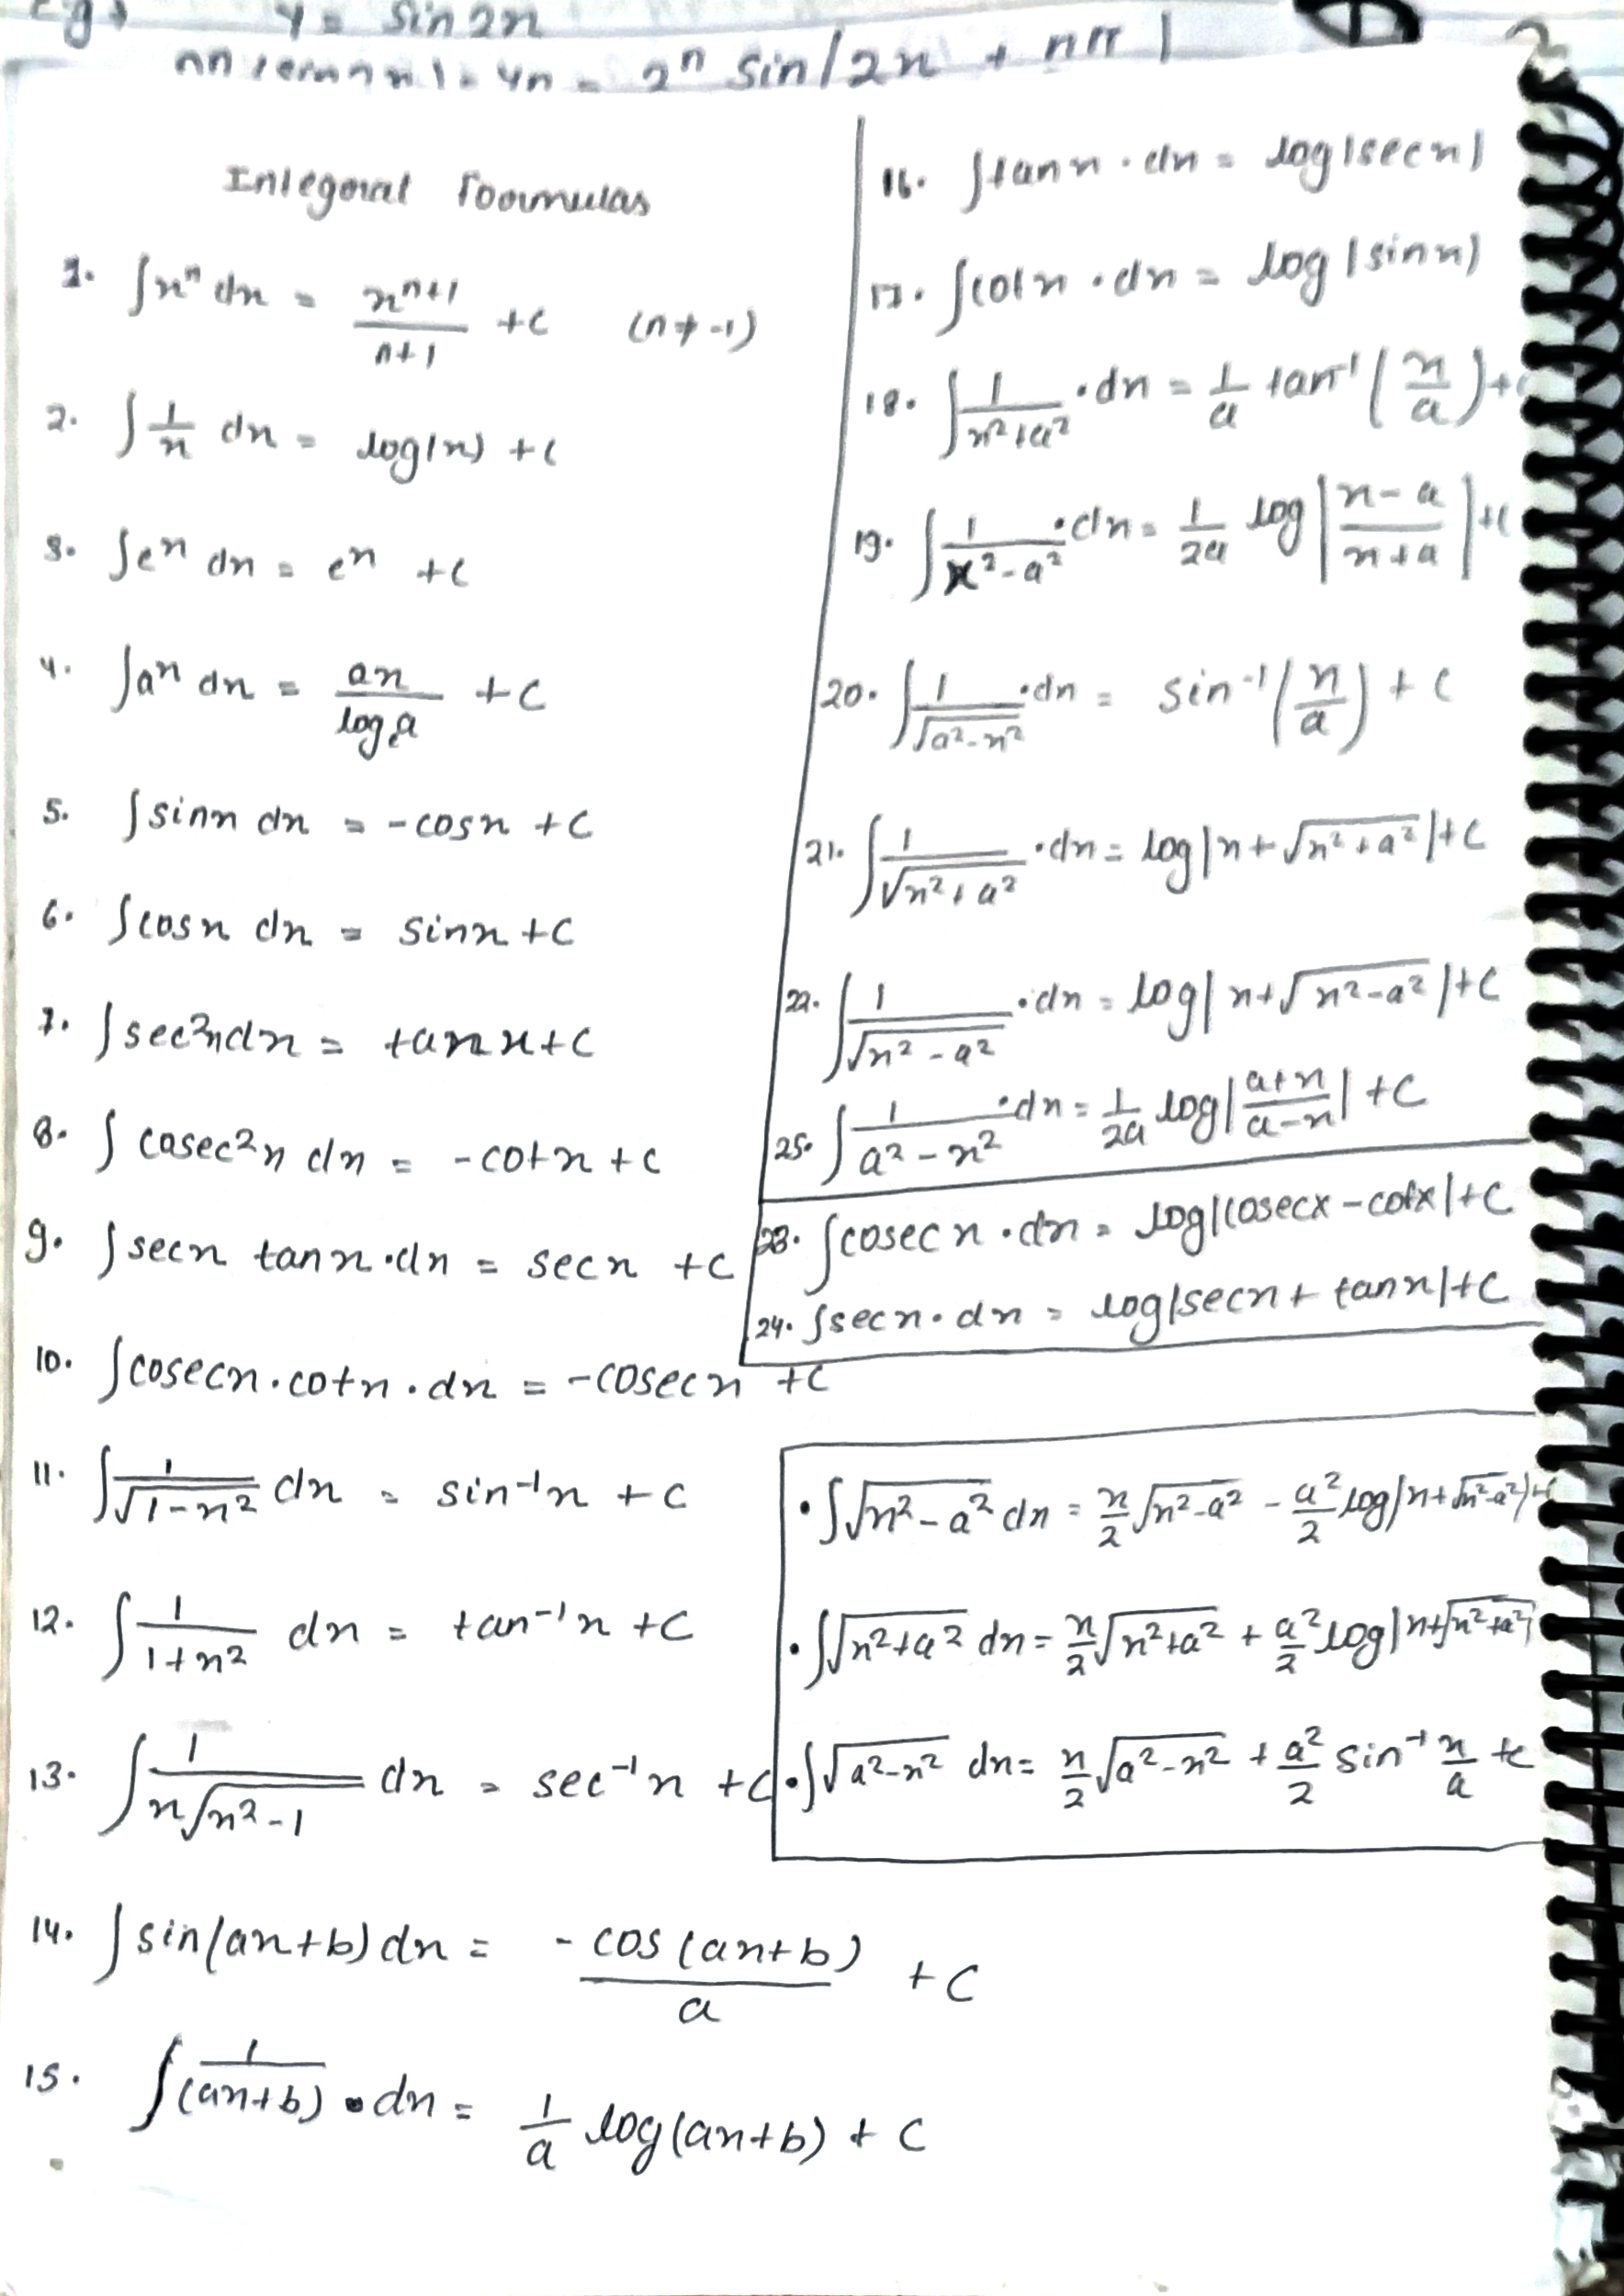 y = sin2x
yn = 2ⁿ sin(2x + nπ
Integral Formulas
1. ∫xⁿ dx = xⁿ⁺¹/n+1 +c (n≠-1)
2. ∫1/x dx = log(x) +c
3. ∫eˣ dx = eˣ +c
4. ∫aˣ dx = aˣ/logₑa +c
5. ∫sinx dx = -cosx +c
6. ∫cosx dx = sinx+c
7. ∫sec²xdx = tanx+c
8. ∫cosec²x dx = -cotx+c
9. ∫secx tanx·dx = secx +c
10. ∫cosecx·cotx·dx = -cosecx +c
11. ∫1/√1-x² dx = sin⁻¹x +c
12. ∫1/1+x² dx = tan⁻¹x +c
13. ∫1/x√x²-1 dx = sec⁻¹x +c
14. ∫sin(ax+b)dx = -cos(ax+b)/a +c
15. ∫1/(ax+b)·dx = 1/a log(ax+b) + c
16. ∫tanx·dx = log|secx|
17. ∫cotx·dx = log|sinx|
18. ∫1/x²+a²·dx = 1/a tan⁻¹(x/a)+c
19. ∫1/x²-a²·dx = 1/2a log|x-a/x+a|+c
20. ∫1/√a²-x²·dx = sin⁻¹(x/a) + c
21. ∫1/√x²+a²·dx = log|x+√x²+a²|+c
22. ∫1/√x²-a²·dx = log|x+√x²-a²|+c
25. ∫1/a²-x²·dx = 1/2a log|a+x/a-x| +c
23. ∫cosecx·dx = log|cosecx-cotx|+c
24. ∫secx·dx = log|secx+tanx|+c
• ∫√x²-a² dx = x/2√x²-a² - a²/2 log|x+√x²-a²|+c
• ∫√x²+a² dx = x/2√x²+a² + a²/2 log|x+√x²+a²|
• ∫√a²-x² dx = x/2√a²-x² + a²/2 sin⁻¹ x/a +c